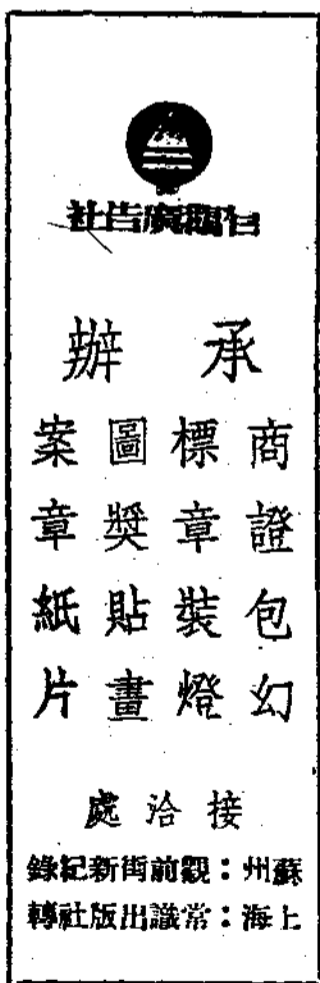 廣告社
承辦
商標圖案
證章獎章
包裝貼紙
幻燈畫片
接洽處
蘇州：觀前街新紀錄
上海：常識出版社轉